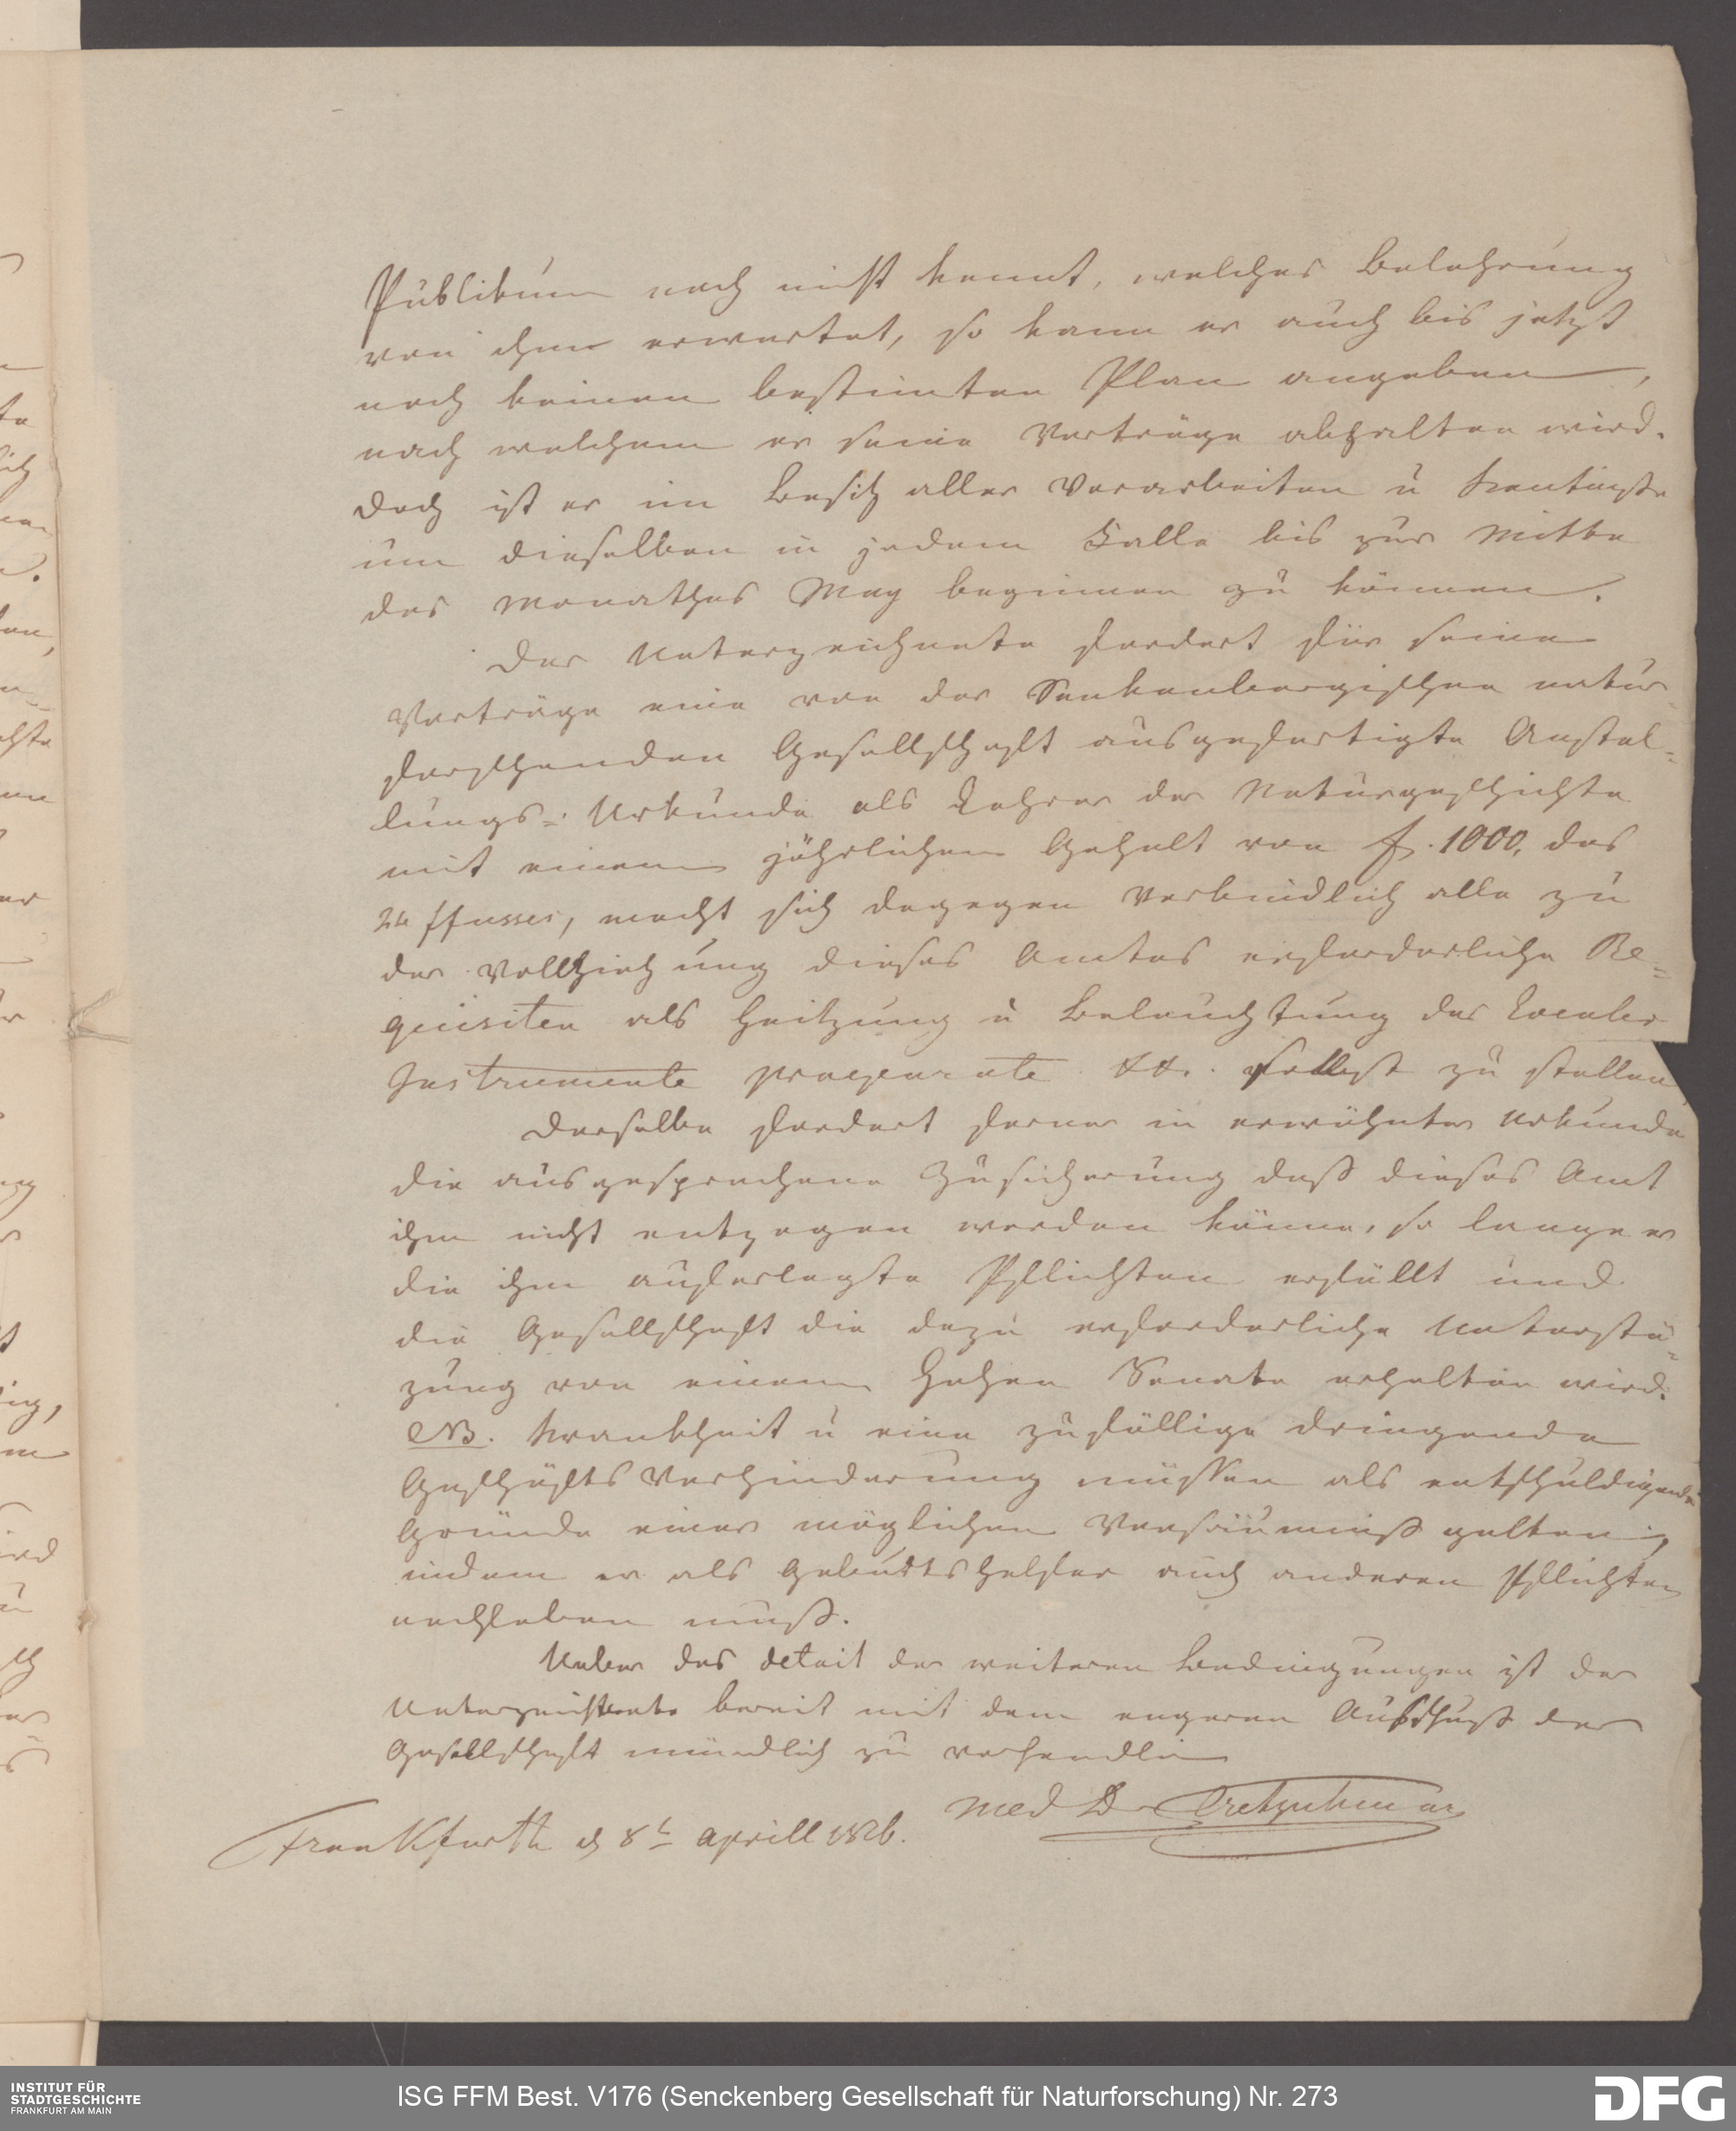 Publikum noch nicht kennt, welches Belehrung
von ihm erwartet, so kann er auch bis jetzt
noch keinen bestimten Plan angeben,
nach welchem er seine Vorträge abhalten wird.
Doch ist er im Besitz aller Vorarbeiten u
um dieselben in jedem Falle bis zur Mitte
des Monathes May beginnen zu können.
Der Unterzeichnete fordert für seine
Vorträge eine von der Senkenbergischen natur-
forschenden Gesellschaft ausgefertigte Anstel-
lungs-Urkunde als Lehrer der Naturgeschichte
mit einem jährlichen Gehalt von f. 1000, des
24 ffusses, macht sich dagegen verbindlich alle zu
der Vollziehung dieses Amtes erforderliche Re-
quisiten als Heitzung u Beleuchtung des Locales
Instrumente praeparate &&. selbst zu stellen
Derselbe fordert ferner in erwähnter Urkunde
die ausgesprochene Zusicherung daß dieses Amt
ihm nicht entzogen werden könne, so lange er
die ihm auferlegte Pflichten erfüllt und
die Gesellschaft die dazu erforderliche Unterstü-
zung von einem Hohen Senate erhalten wird.
NB. Krankheit u eine zufällige dringende
Geschäfts Verhinderung müssen als entschuldigende
Gründe einer möglichen Versäumniß gelten,
indem er als Geburtshelfer auch anderen Pflichten
nachleben muß.
Ueber das detail der weiteren Bedingungen ist der
Unterzeichnete bereit mit dem engeren Ausschuß der
Gesellschaft mündlich zu verhandlen
Med Dr Cretzschmar
Frankfurth d 8t Aprill 1826.
INSTITUT FÜR
STADTGESCHICHTE
FRANKFURT AM MAIN
ISG FFM Best. V176 (Senckenberg Gesellschaft für Naturforschung) Nr. 273
DFG